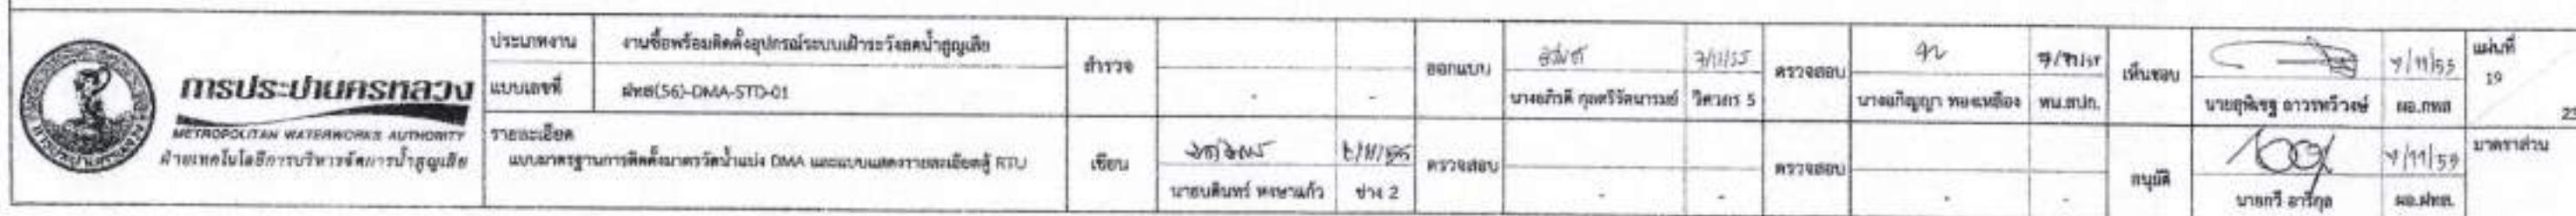 การประปานครหลวง
METROPOLITAN WATERWORKS AUTHORITY
ฝ่ายเทคโนโลยีการบริหารจัดการน้ำสูญเสีย
ประเภทงาน
งานซื้อพร้อมติดตั้งอุปกรณ์ระบบเฝ้าระวังลดน้ำสูญเสีย
แบบเลขที่
ฝทส(56)-DMA-STD-01
รายละเอียด
แบบมาตรฐานการติดตั้งมาตรวัดน้ำแบ่ง DMA และแบบแสดงรายละเอียดตู้ RTU
สำรวจ
-
-
เขียน
นายบดินทร์ หงษาแก้ว
ช่าง 2
ออกแบบ
7/11/55
วิศวกร 5
ตรวจสอบ
-
-
ตรวจสอบ
นางอภิญญา ทองเหลือง
หน.สปก.
ตรวจสอบ
-
-
เห็นชอบ
7/11/55
ผอ.กทส
อนุมัติ
นายทวี อารีกุล
ผอ.ฝทส.
แผ่นที่
19
23
มาตราส่วน